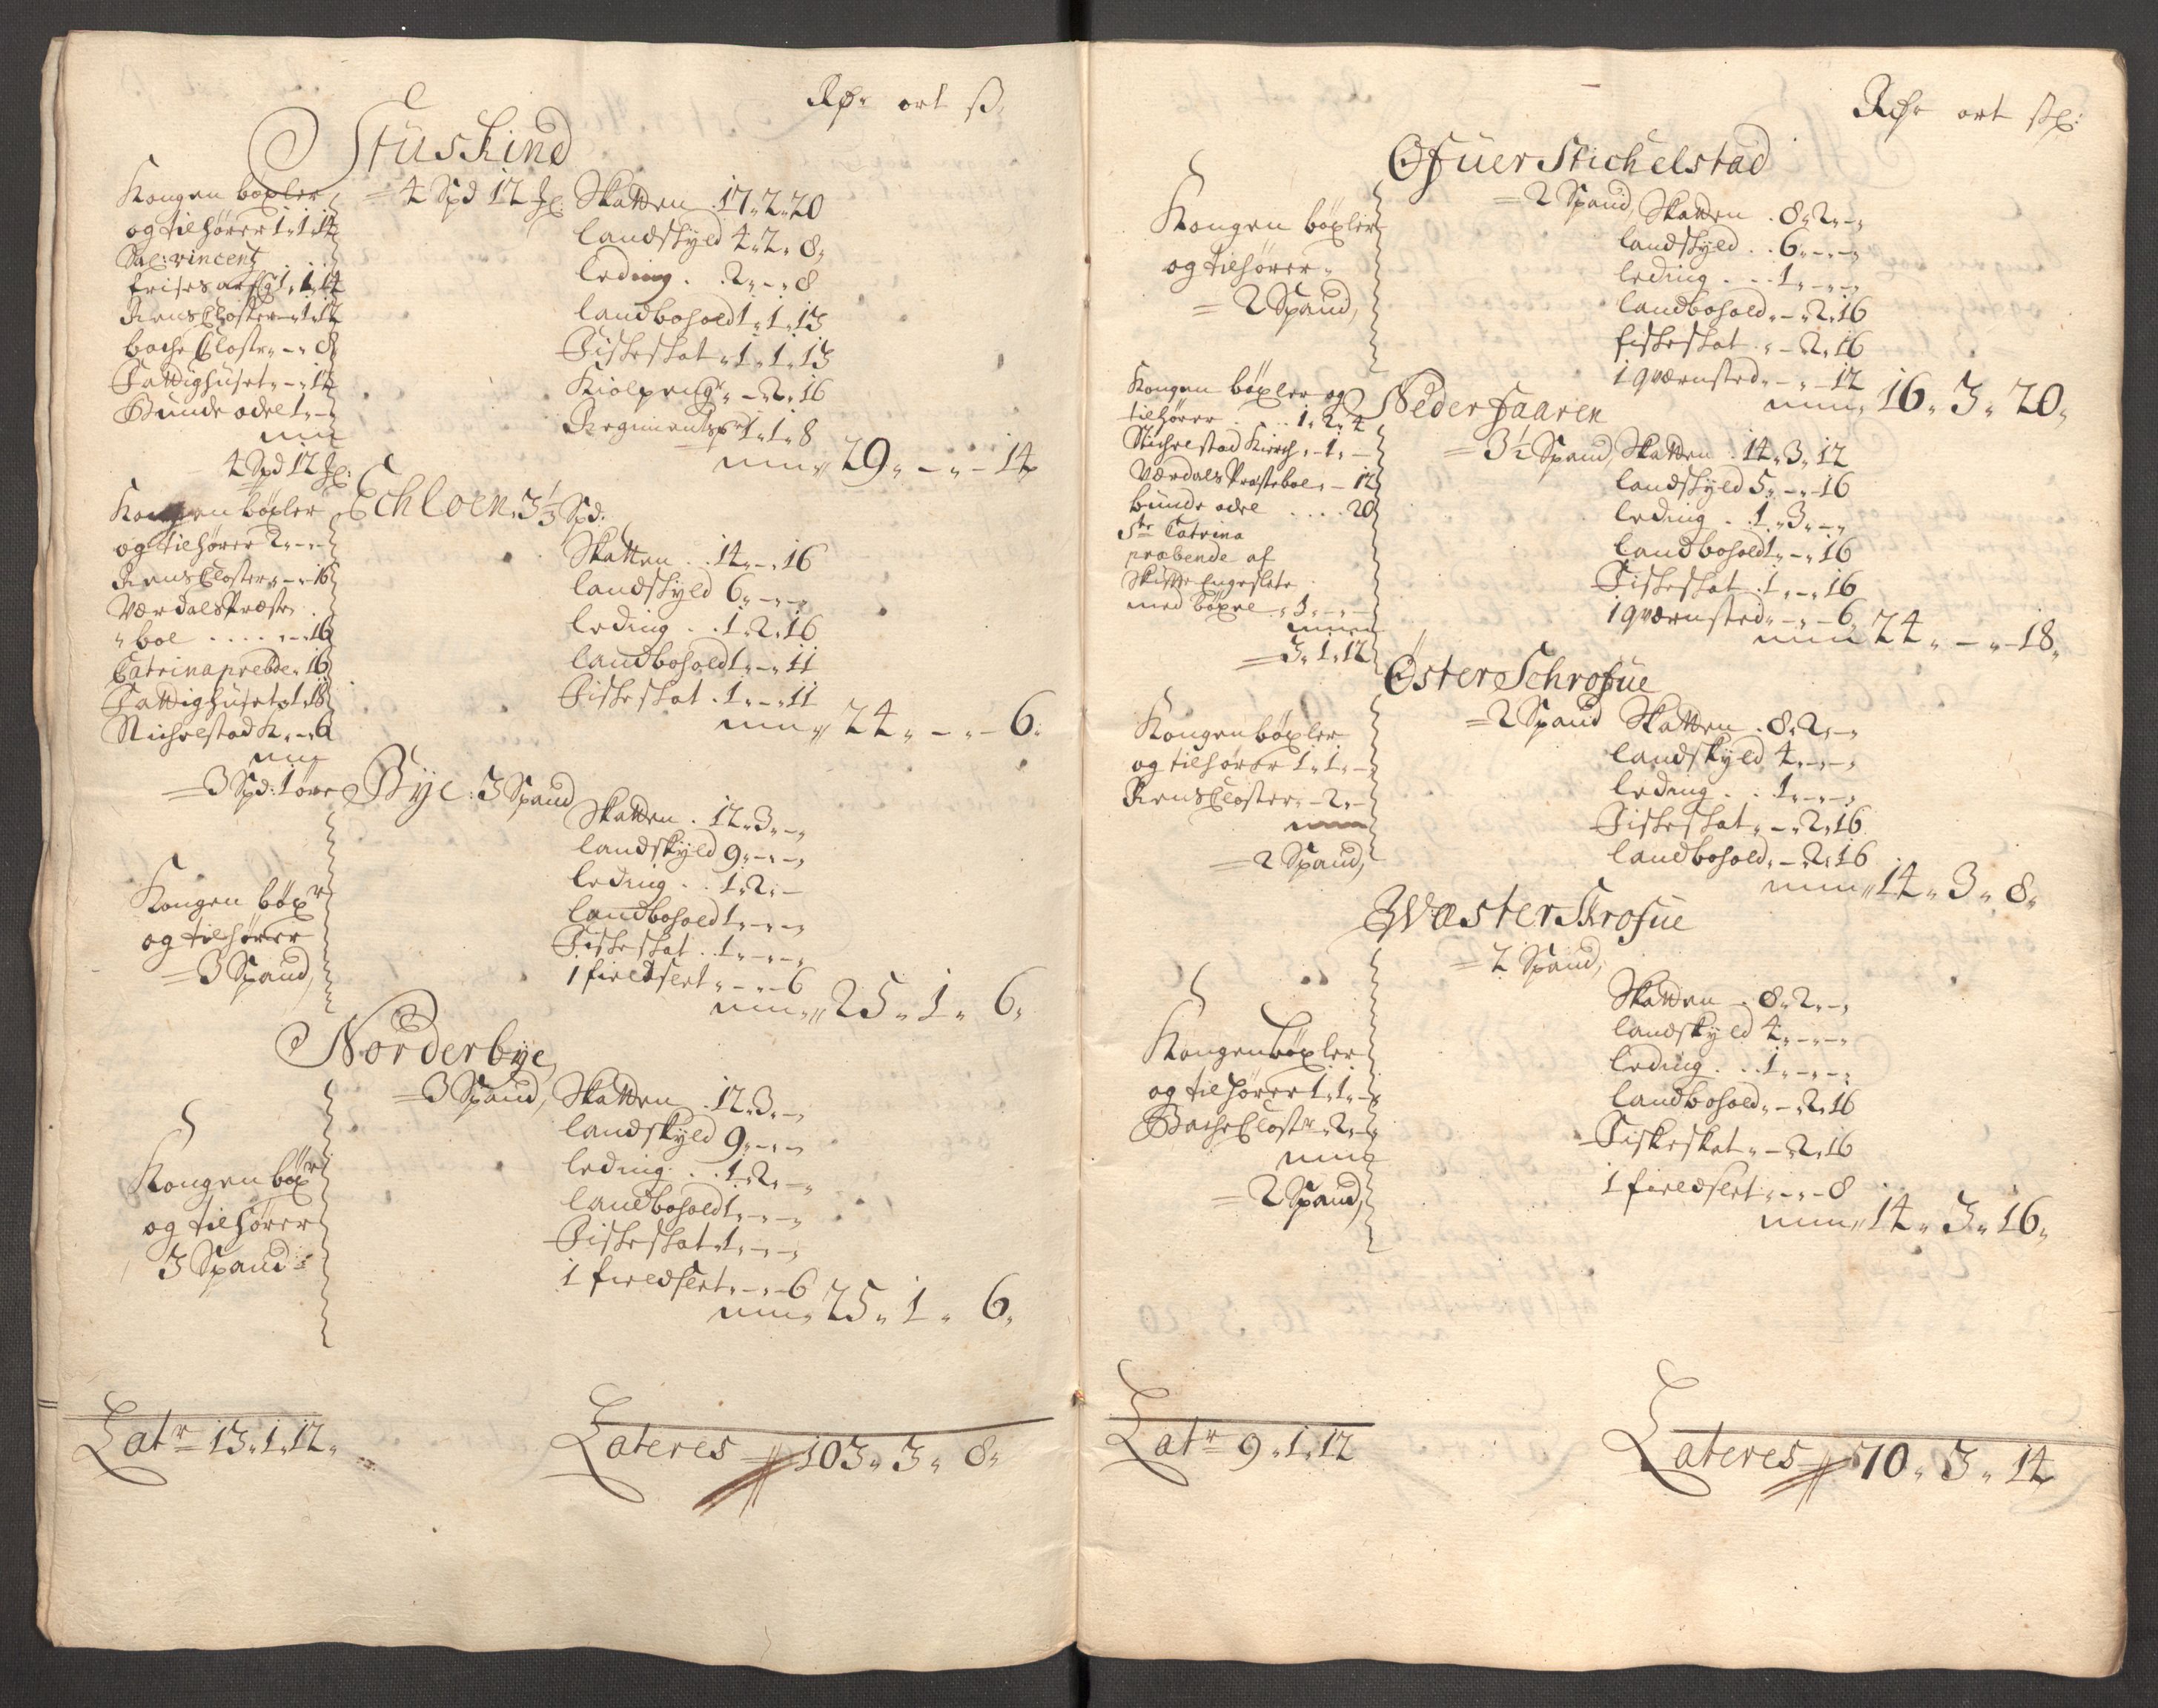 Rdr ort ß
Stuskind
Kongen bøxler
og tilhører 1„1„14
Sal: vincentz
frises arfg 1„1„14
Rens Closter „1„12
bache Closter „–„ 8
Fattighuset „–„12
Bunde odel 1„–
4 Spd 12
= 4 Spd 12
Skatten 17„2„20
landskyld 4„2„8
leding . 2„–„8
landbohold 1„1„13
Fiskeskat „1„1„13
„–„2„16
1„1„8
29„–„–14
Echloen 3 1/3 Spd:
Kongen bøxler
og tilhører 2„–„–
Rens Closter „–„16
Værdals Præste
„bol . . . . „–„16
Catrina prebde „16
Fattighuset „1„18
Stichelstad K. „–„6
= 3 Spd: 1 øre
Skatten . . 14„–„16
landskyld 6„–„–
leding . . 1„2„16
landbohold 1„–„11
Fiskeskat . 1„–„11
24„–„–6
Bÿe: 3 Spand
Kongen bøxr
og tilhører
= 3 Spand,
Skatten . 12„3„–
landskyld 9„–„–
leding . . 1„2„–
landbohold 1„–„–
Fiskeskat . 1„–„–
1 „–„–6
25„1„6
Norderbÿe
= 3 Spand,
Kongen bøxr
og tilhører
3 Spand
Skatten . 12„3„–
landskyld 9„–„–
leding . . 1„2„–
landbohold 1„–„–
Fiskeskat „1„–„–
1 „–„–6
25„1„6
Latr 13„1„12
Lateres 103„3„8
Rdr ort
Ofuer Stichelstad
= 2 Spand,
Kongen bøxler
og tilhører
= 2 Spand,
Skatten . 8„2„–
landskyld . . 6„–„–
leding . . . 1„–„–
landbohold „–„2„16
fiskeskat . „–2„16
1 qværnsted „–„–12
16„3„20
Neder faaren
= 3½ Spand
Kongen bøxler og
tilhører . . . 1„2„4
Stichelstad Kirch „–1„–
Værdals Prestebol „–12
bunde odel . . . . 20
Ste Catrina
præbende af
Skiftte Engeslete
med bøxel „1„–„–
= 3„1„12
Skatten . 14„3„12
landskyld 5„–„16
leding . . 1„3„–
landbohold 1„–„16
Fiskeskat . 1„–„16
1 qværnsted „–„–6
24„–„–18
Øster Schrofue
= 2 Spand
Kongen bøxler
og tilhører 1„1„–
Rens Closter „–2„–
= 2 Spand,
Skatten . 8„2„–
landskyld 4„–„–
leding . . 1„–„–
Fiskeskat „–„2„16
landbohold „–2„16
14„3„8
Wæster Skrofue
= 2 Spand,
Kongen bøxler
og tilhører 1„1„–
Bache Clostr „2„–
= 2 Spand,
Skatten . 8„2„–
landskyld 4„–„–
leding . . 1„–„–
landbohold „–„2„16
Fiskeskat „–2„16
1 „–„–8
14„3„16
Latr 9„1„12
Lateres 70„3„14